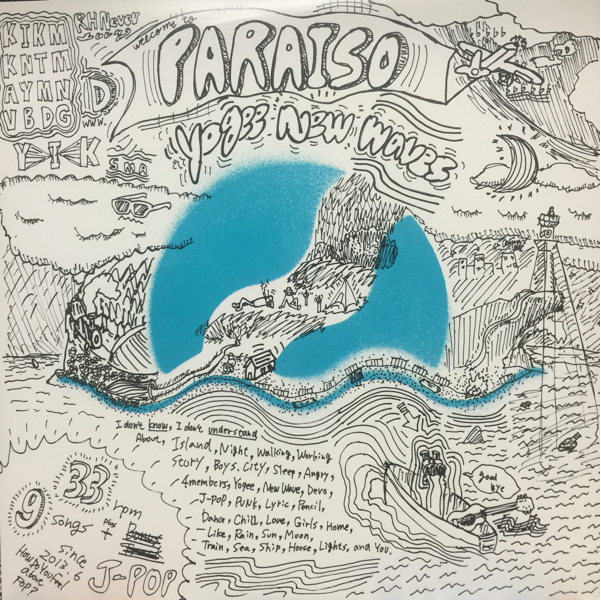 KIKM
KNTM
AYMN
VBDG
RHNever
D
WWW.
Y I K
SMA
welcome to
PARAISO
Yogee New Waves
I don't know, I don't understand
About, Island, Night, Walking, Working
Story, Boys, City, Sleep, Angry,
4members, Yogee, New Wave, Devo,
J-POP, PUNK, Lyric, Pencil,
Dance, Chill, Love, Girls, Home,
Like, Rain, Sun, Moon,
Train, Sea, Ship, House, Lights, and You.
good
bye
33 rpm
9 songs
plus
+
Bonus
since
2013.6
How do you feel
above
POP?
J-POP